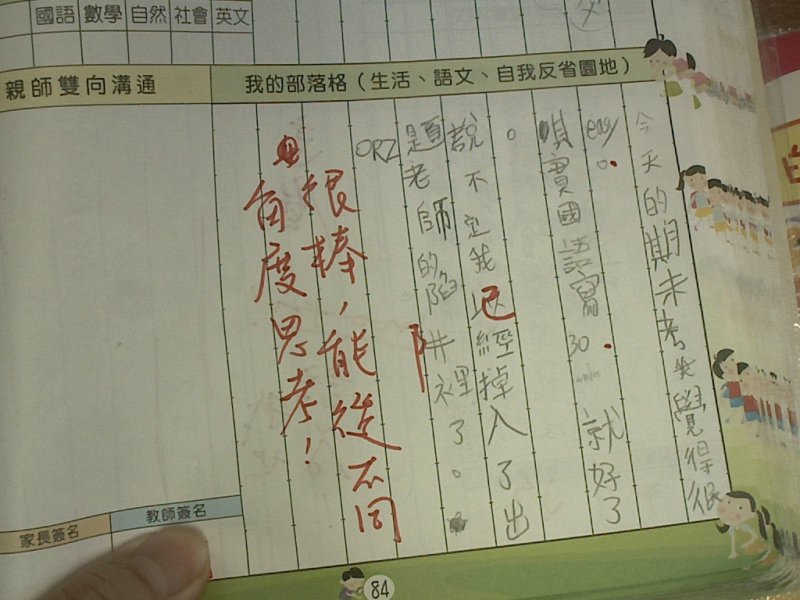 國語 數學 自然 社會 英文
親師雙向溝通
我的部落格（生活、語文、自我反省園地）
今天的期末考我覺得很
easy。
實國語寫30min就好了
。
說不定我已經掉入了出
題老師的陷阱裡了。
ORZ
很棒，能從不同
角度思考！
家長簽名
教師簽名
84